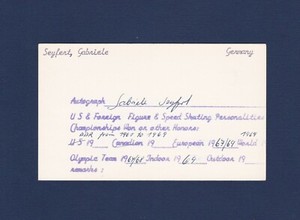 Seyfert, Gabriele Germany
Autograph Gabriele Seyfert
US & Foreign Figure & Speed Skating Personalities
Championships Won or other Honors:
DDR from 1961 to 1969 1969
U.S 19 Canadian 19 European 1967/69 World
Olympic Team 1964/68 Indoor 1969 Outdoor 19
remarks :